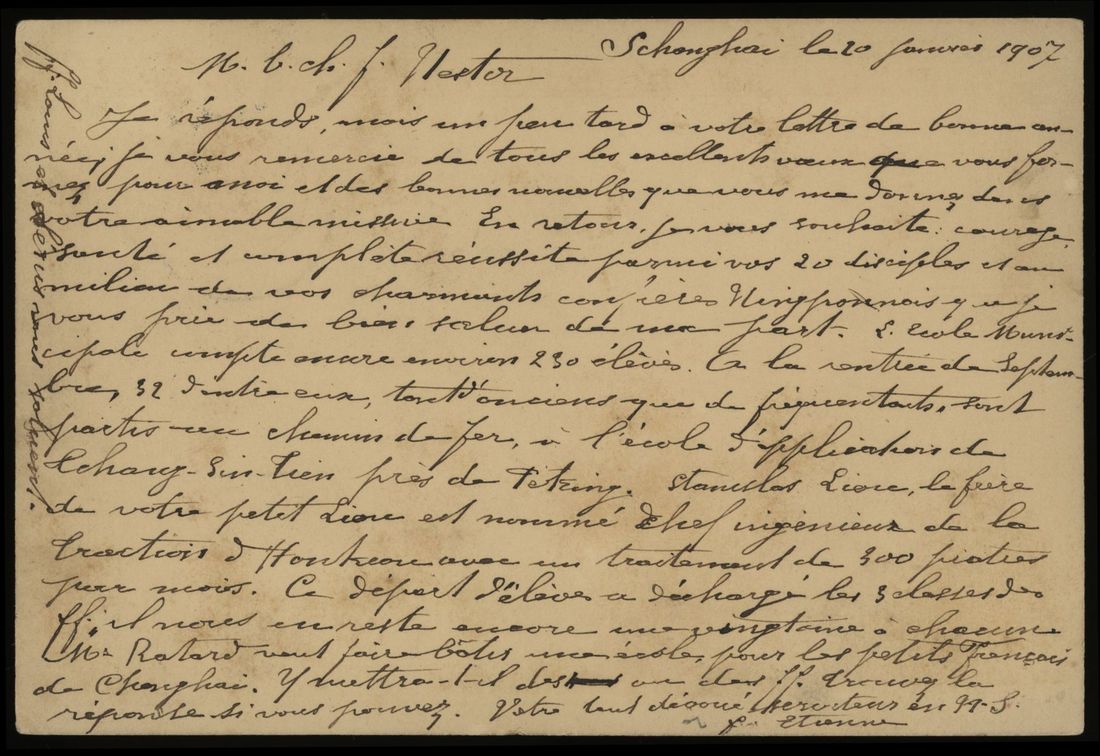 Schanghai le 20 janvier 1907
M. b. ch. f. Nestor
Je réponds, mais un peu tard à votre lettre de bonne an-
née; je vous remercie de tous les excellents vœux que vous for-
mez pour moi et des bonnes nouvelles que vous me donnez dans
votre aimable missive. En retour, je vous souhaite: courage,
santé et complète réussite parmi vos 20 disciples et au
milieu de vos charmants confrères Ningponnais que je
vous prie de bien saluer de ma part. L'école Muni-
cipale compte encore environ 230 élèves. A la rentrée de Septem-
bre, 32 d'entre eux, tant d'anciens que de fréquentants, sont
partis au chemin de fer, à l'école d'application de
Tchang-Sin-Tien près de Péking. Stanislas Liou, le frère
de votre petit Liou est nommé Chef ingénieur de la
traction d'Hankeou avec un traitement de 300 piastres
par mois. Ce départ d'élèves a déchargé les 3 classes des
ff. il nous en reste encore une vingtaine à chacun.
Mr Ratard veut faire bâtir une école, pour les petits Français
de Changhai. Y mettra-t-il des ou des ff. trouvez la
réponse si vous pouvez. Votre tout dévoué serviteur en N-S.
f. Etienne
ff. Louis et vous saluent.